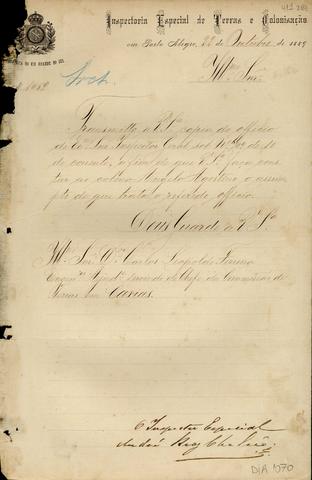 Inspectoria Especial de Terras e Colonisação
em Porto Alegre, 22 de Outubro de 1889
Illmo Snr.
Transmitto a V. Sa copia do officio
do Exmo Snr Inspector Geral sob No
de 10
do corrente, a fim de que V. Sa faça cons-
tar ao colono Angelo o assum-
pto de que trata o referido officio.
Deus Guarde a V. Sa
Illmo Snr Dr Carlos Leopoldo
Engenro Ajudte servindo de Chefe da Commissão de
Terras em Caxias.
O Inspector Especial
André
DIA 1070